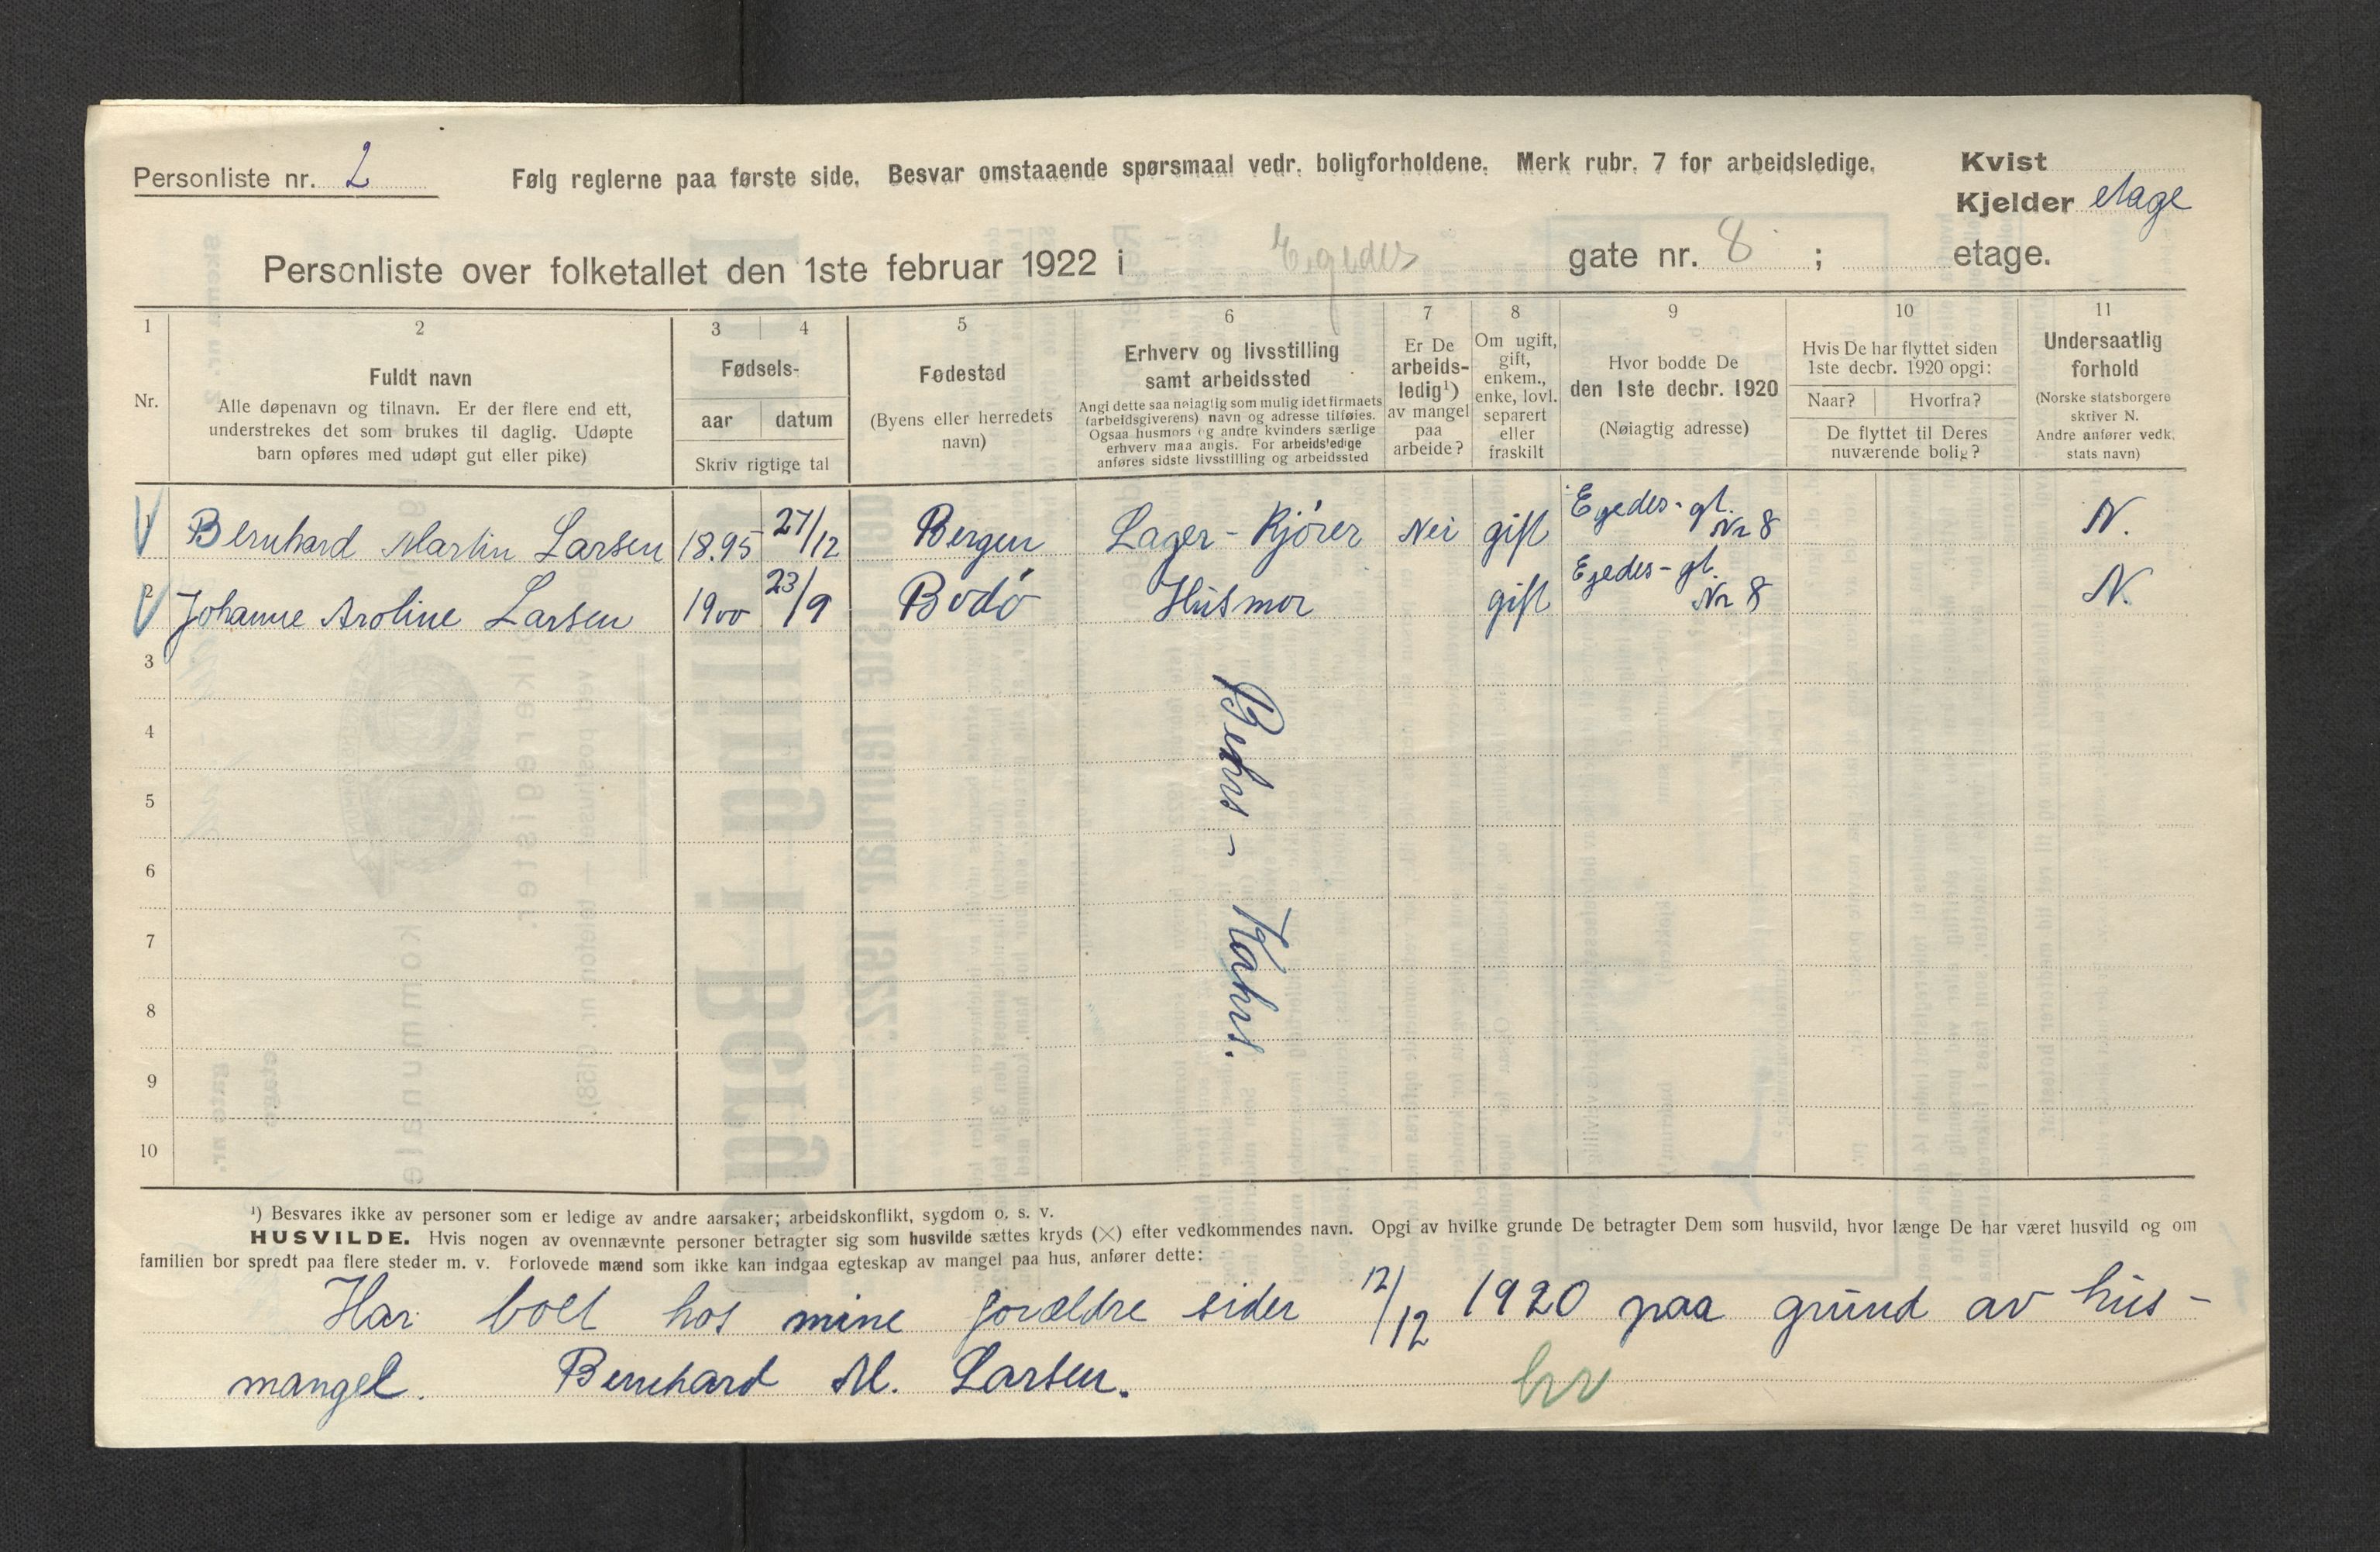 Personliste nr. 2
Følg reglerne paa første side. Besvar omstaaende spørsmaal vedr. boligforholdene. Merk rubr. 7 for arbeidsledige.
Kvist
Kjelder etage
Personliste over folketallet den 1ste februar 1922 i Egedes gate nr. 8 ; etage.
1 2 3 4 5 6 7 8 9 10 11
Nr.
Fuldt navn
Alle døpenavn og tilnavn. Er der flere end ett,
understrekes det som brukes til daglig. Udøpte
barn opføres med udøpt gut eller pike)
Fødsels-
aar datum
Skriv rigtige tal
Fødested
(Byens eller herredets
navn)
Erhverv og livsstilling
samt arbeidssted
Angi dette saa nøiagtig som mulig idet firmaets
(arbeidsgiverens) navn og adresse tilføies.
Ogsaa husmors og andre kvinders særlige
erhverv maa angis. For arbeidsledige
anføres sidste livsstilling og arbeidssted
Er De
arbeids-
ledig¹)
av mangel
paa
arbeide?
Om ugift,
gift,
enkem.,
enke, lovl.
separert
eller
fraskilt
Hvor bodde De
den 1ste decbr. 1920
(Nøiagtig adresse)
Hvis De har flyttet siden
1ste decbr. 1920 opgi:
Naar? Hvorfra?
De flyttet til Deres
nuværende bolig?
Undersaatlig
forhold
(Norske statsborgere
skriver N.
Andre anfører vedk.
stats navn)
1 Bernhard Martin Larsen 18.95 27/12 Bergen Lager-Kjører Nei gift Egedes-gt. Nr 8 N.
2 Johanne Aroline Larsen 1900 23/9 Bodø Husmor gift Egedes-gt. Nr 8 N.
3
4
5
6
7
8
9
10
Behrs - Kahrs.
¹) Besvares ikke av personer som er ledige av andre aarsaker; arbeidskonflikt, sygdom o. s. v.
HUSVILDE. Hvis nogen av ovennævnte personer betragter sig som husvilde sættes kryds (×) efter vedkommendes navn. Opgi av hvilke grunde De betragter Dem som husvild, hvor længe De har været husvild og om
familien bor spredt paa flere steder m. v. Forlovede mænd som ikke kan indgaa egteskap av mangel paa hus, anfører dette:
Har boet hos mine forældre siden 12/12 1920 paa grund av hus-
mangel. Bernhard M. Larsen.
hv